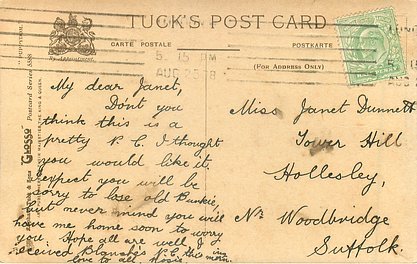 TUCK'S POST CARD
CARTE POSTALE
POSTKARTE
By Appointment
(FOR ADDRESS ONLY)
5. 15 PM
AUG 25 8
"GLOSSO"
Postcard Series 5886
My dear Janet,
Dont you
think this is a
pretty P.C. I thought
you would like it.
expect you will be
sorry to lose old Bunkie,
but never mind you will
have me home soon to worry
you. Hope all are well. I
received Blanche's P.C. this morn.
love to all. Rosie
Miss Janet Dunnett
Tower Hill
Hollesley,
Nr. Woodbridge
Suffolk.